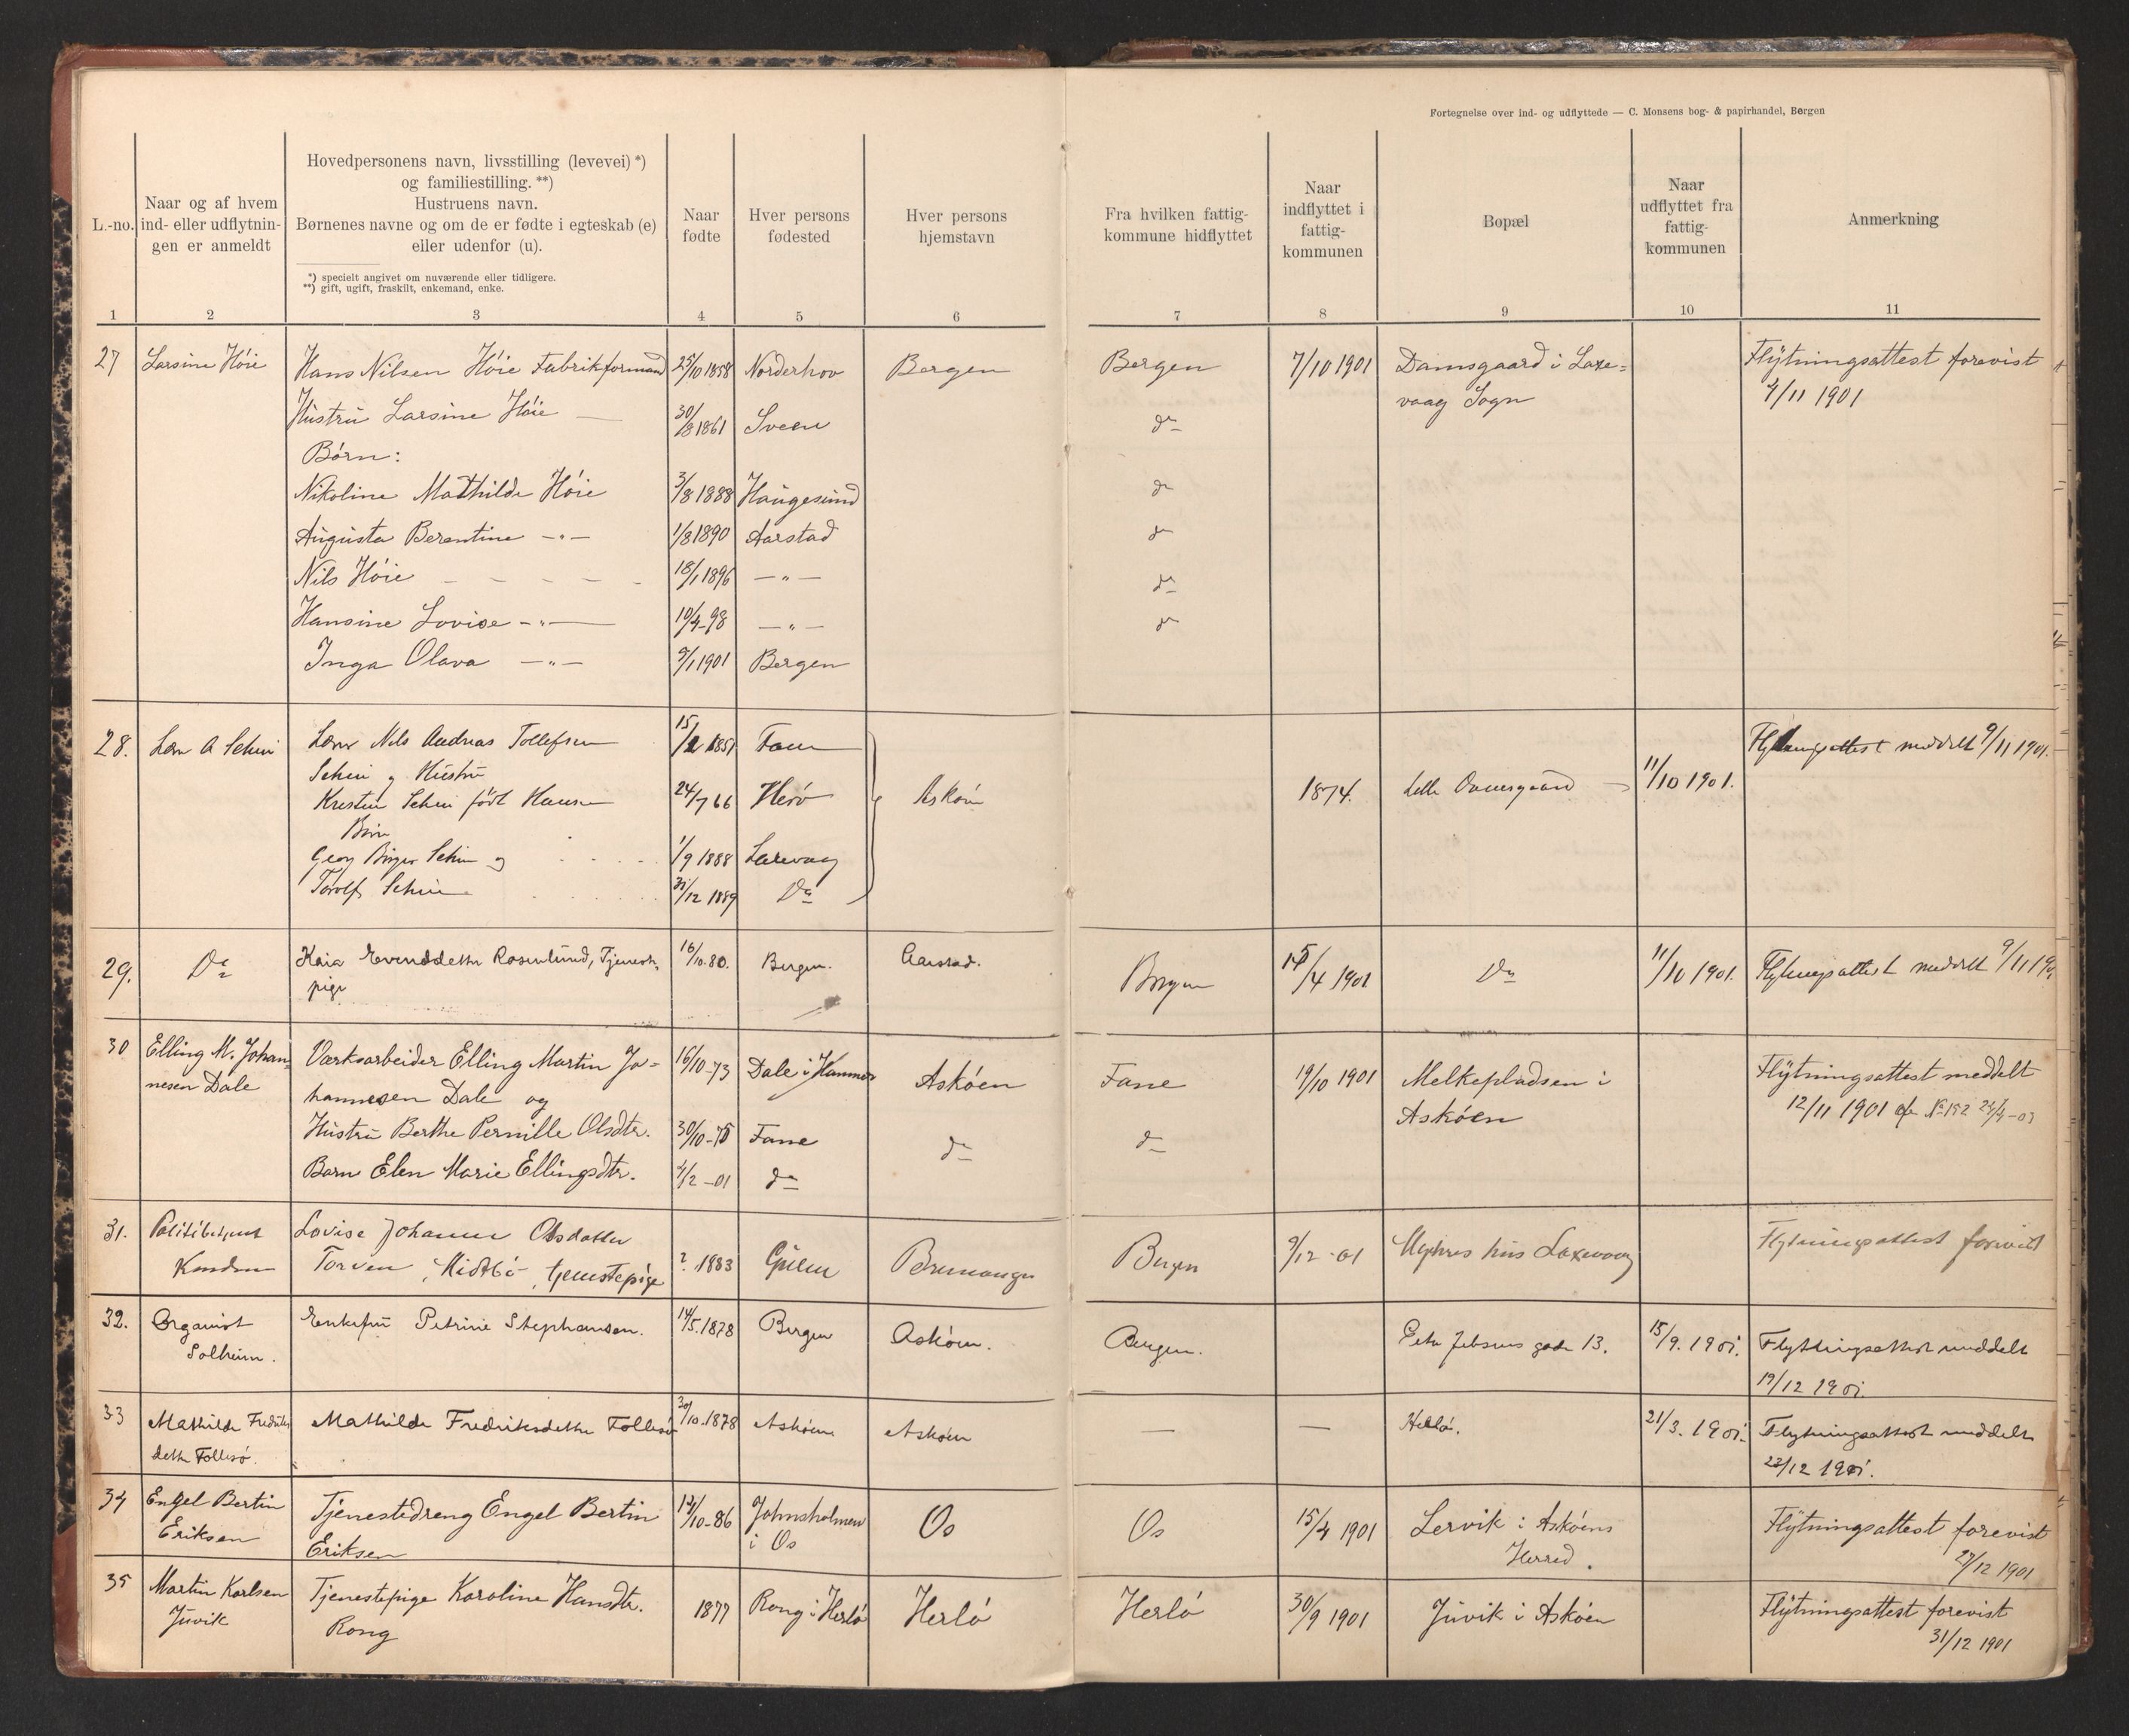 Fortegnelse over ind- og udflyttede — C. Monsens bog- & papirhandel, Bergen
L.-no.
Naar og af hvem
ind- eller udflytnin-
gen er anmeldt
Hovedpersonens navn, livsstilling (levevei) *)
og familiestilling. **)
Hustruens navn.
Børnenes navne og om de er fødte i egteskab (e)
eller udenfor (u).
*) specielt angivet om nuværende eller tidligere.
**) gift, ugift, fraskilt, enkemand, enke.
Naar
fødte
Hver persons
fødested
Hver persons
hjemstavn
Fra hvilken fattig-
kommune hidflyttet
Naar
indflyttet i
fattig-
kommunen
Bopæl
Naar
udflyttet fra
fattig-
kommunen
Anmerkning
1 2 3 4 5 6 7 8 9 10 11
27 Larsine Höie Hans Nilsen Höie Fabrikformand 25/10 1858 Norderhov Bergen Bergen 7/10 1901 Damsgaard i Laxe= Flÿtningsattest forevist
Hustrü Larsine Höie — 30/8 1861 Sveen do vaag Sogn 4/11 1901
Börn:
Nikoline Mathilde Höie 3/8 1888 Haügesund do
Aügusta Berentine —"— 1/8 1890 Aarstad do
Nils Höie 18/1 1896 —"— do
Hansine Lovise —"— 10/4-98 —"— do
Inga Olava —"— 9/1 1901 Bergen
28. Lærer Nils Andreas Tollefsen 15/2 Fane meddelt 9/11 1901.
og Hustrü
Kristin født Hansen 24/7 66 Herö Askøen 1874. Damsgaard 11/10 1901.
Børn
Georg Birger og 1/9 1888 Laxevaag
31/12 1889 Do
29. Do Kaia Rosenlünd, Tjeneste- 16/10.80. Bergen. Aarstad. Bergen /4 1901 Do 11/10 1901. Flytningsattest meddelt 9/11 190
pige
30 Elling M. Johan= Værksarbeider Elling Martin Jo= 16/10-73 Dale i Hammer Asköen Fane 19/10 1901 Melkepladsen i Flÿtningsattest meddelt
nesen Dale hannesen Dale og Asköen 12/11 1901 No 192
Hustrü Berthe Pernille Olsdtr. 30/10-75 Fane do do
Barn Elen Marie Ellingsdtr. 4/2-01 do
31. Politibetjent Lovise Johanne Olsdatter Flytningsattest forevist
Torven, Midtbö, tjenestepige ? 1883 Gulen Bremanger Bergen 9/12-01 hüs Laxevaag
32. Organist Enkefrü Petrine Stephansen. 14/5.1878 Bergen Asköen. Bergen. Peter Jebsens gade 13. 15/9. 1901. Flyttningsattest meddelt
Solheim. 19/12 1901.
33 Mathilde Fredriks Mathilde Fredriksdatter Follesö 30/10.1878 Asköen Asköen — — Herlö. 21/3. 1901. Flytningsattest meddelt
datter Follesö. 23/12 1901.
34 Engel Bertin Tjenestedreng Engel Bertin /10-86 Johnsholmen Os Os 15/4 1901 Lervik i Asköens Flÿtningsattest forevist
Eriksen Eriksen i Os Herred. 27/12 1901
35 Martin Karlsen Tjenestepige Karoline Hansdtr. 1877 Rong i Herlö Herlö Herlö 30/9 1901 Jüvik i Asköen Flÿtningsattest forevist
Jüvik Rong 31/12 1901